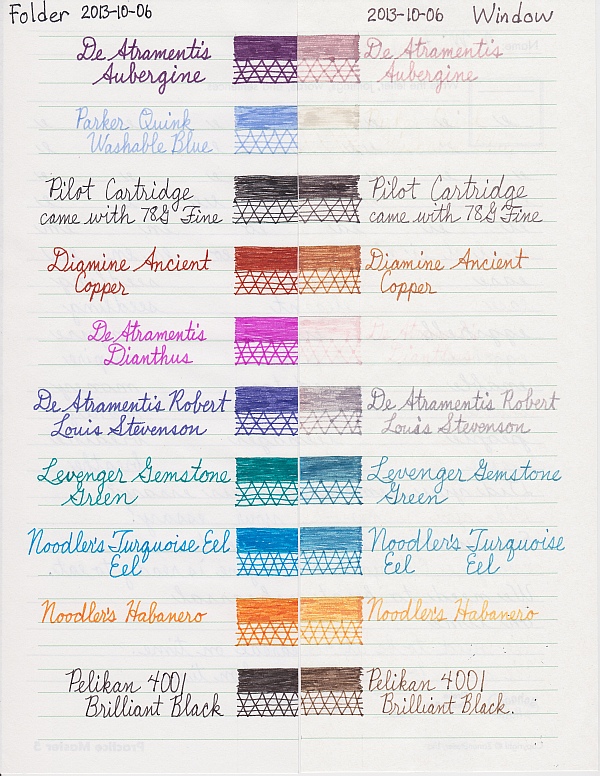 Folder 2013-10-06
2013-10-06 Window
De Atramentis
Aubergine
De Atramentis
Aubergine
Parker Quink
Washable Blue
Pilot Cartridge
came with 78G Fine
Pilot Cartridge
came with 78G Fine
Diamine Ancient
Copper
Diamine Ancient
Copper
De Atramentis
Dianthus
De Atramentis
De Atramentis Robert
Louis Stevenson
De Atramentis Robert
Louis Stevenson
Levenger Gemstone
Green
Levenger Gemstone
Green
Noodler's Turquoise Eel
Eel
Noodler's Turquoise
Eel Eel
Noodler's Habanero
Noodler's Habanero
Pelikan 4001
Brilliant Black
Pelikan 4001
Brilliant Black.